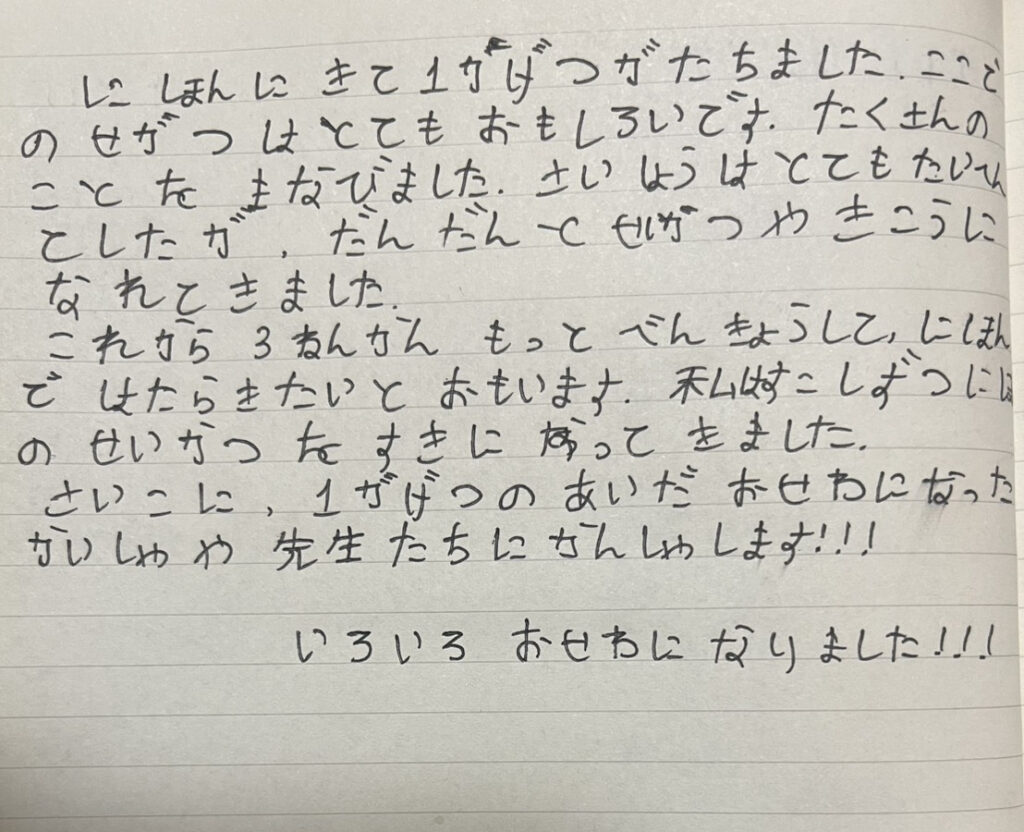 にほんに きて 1がげつがたちました. ここで
の せがつ はとても おもしろいです. たくさんの
こと を まなびました. さいしょうは とても たいへん
としたが, だん だんーと せいがつ や きこうに
なれてきました.
これから 3ねんかん もっと べんきょうして, にほん
で はたらきたいと おもいます. 私はすこしずつにほ
の せいかつ を すきに なって きました.
さいこに, 1がげつの あいだ おせわになった
がいしゃ や 先生 たちに がんしゃします!!!
いろいろ おせわに なりました!!!